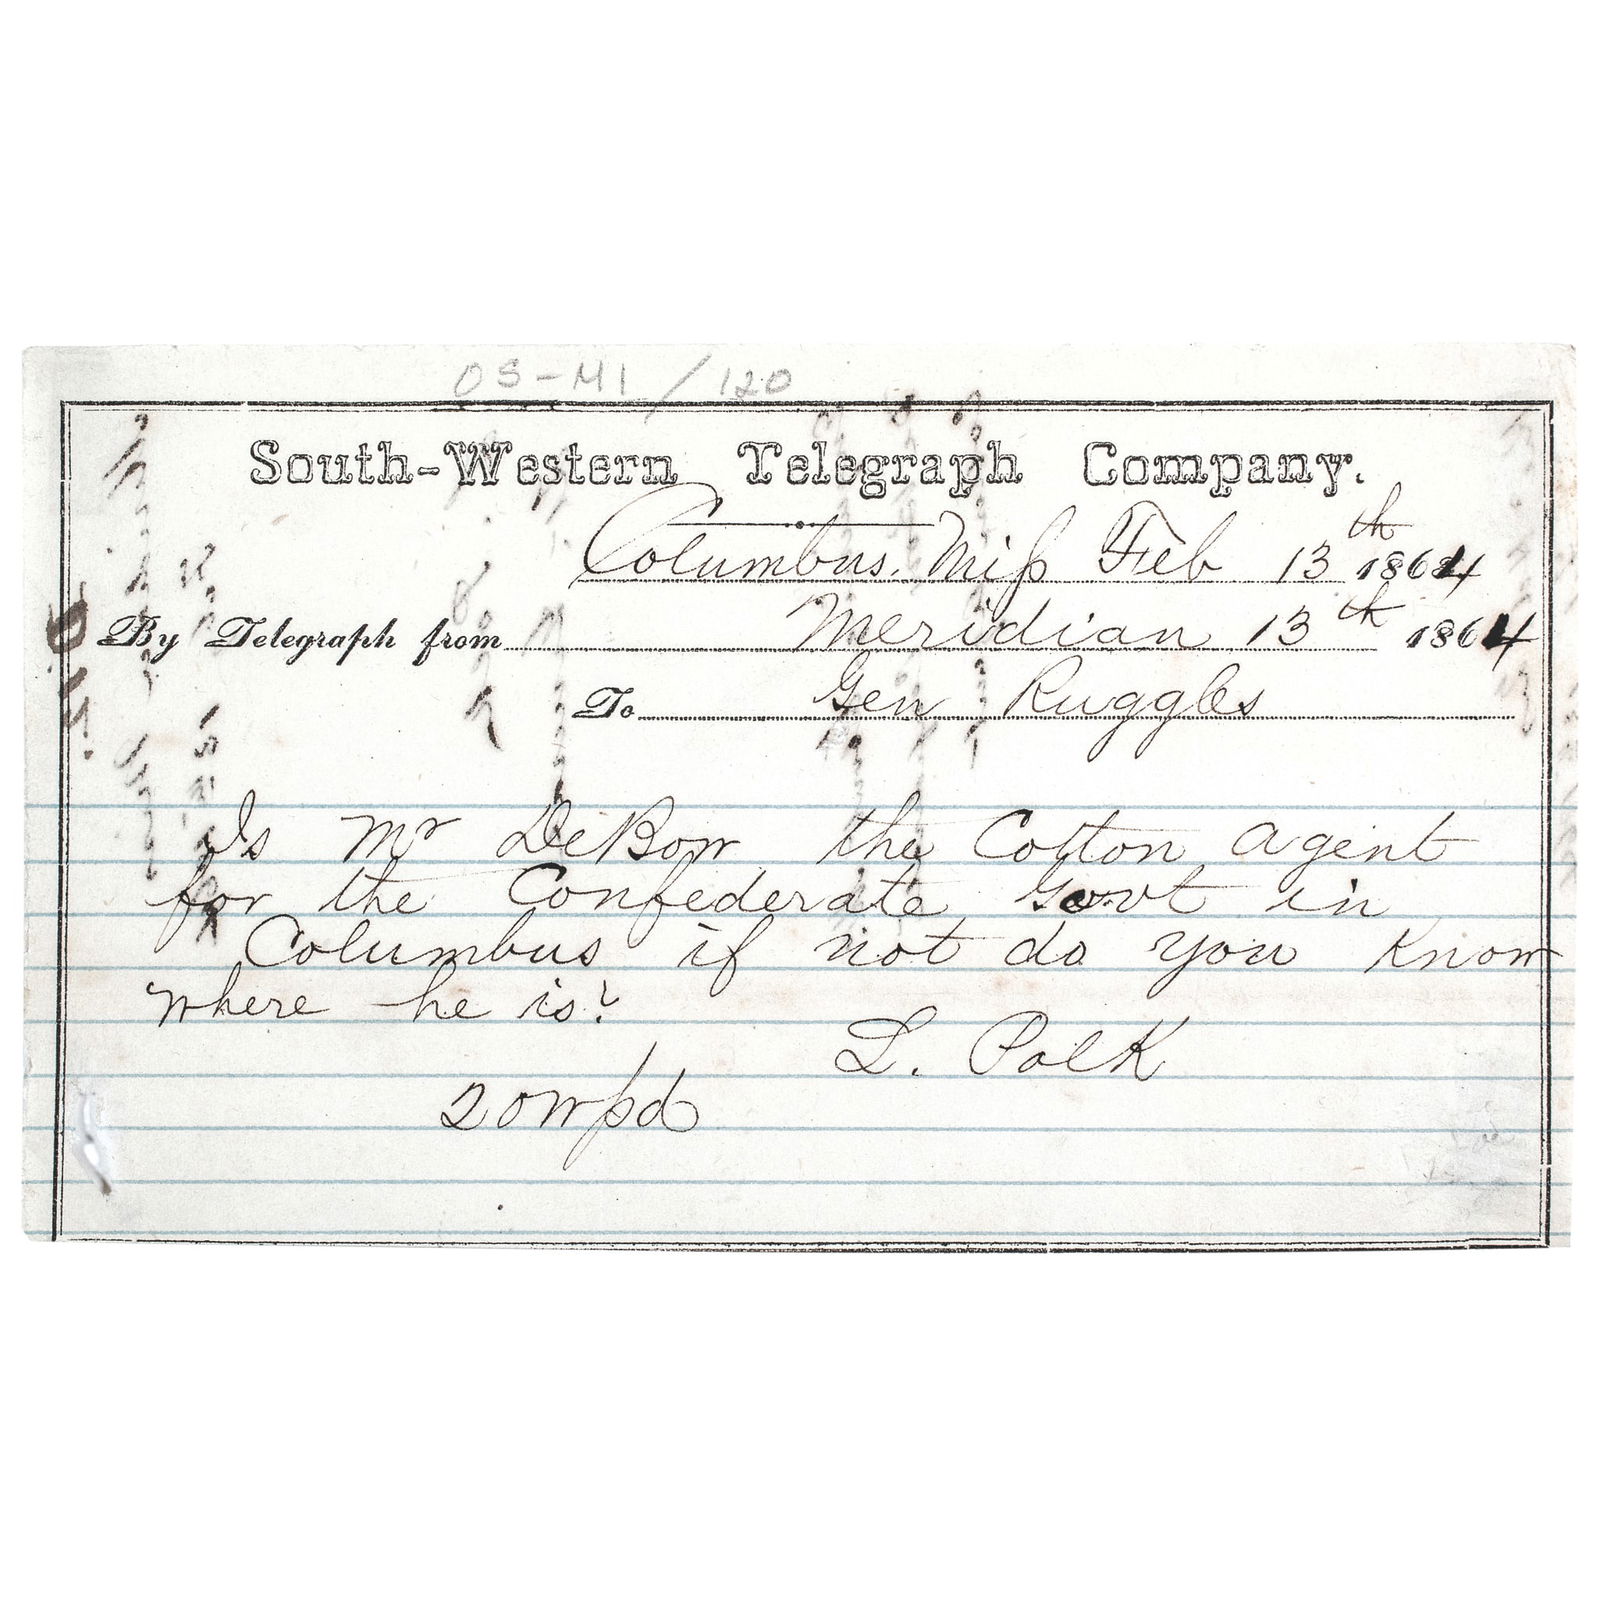 OS-M1/120
South-Western Telegraph Company.
Columbus. Miss Feb 13th 1864
By Telegraph from Meridian 13th 1864
To Gen Ruggles
Is Mr DeBow the Cotton agent
for the Confederate Govt in
Columbus if not do you know
where he is?
L. Polk
20wpd